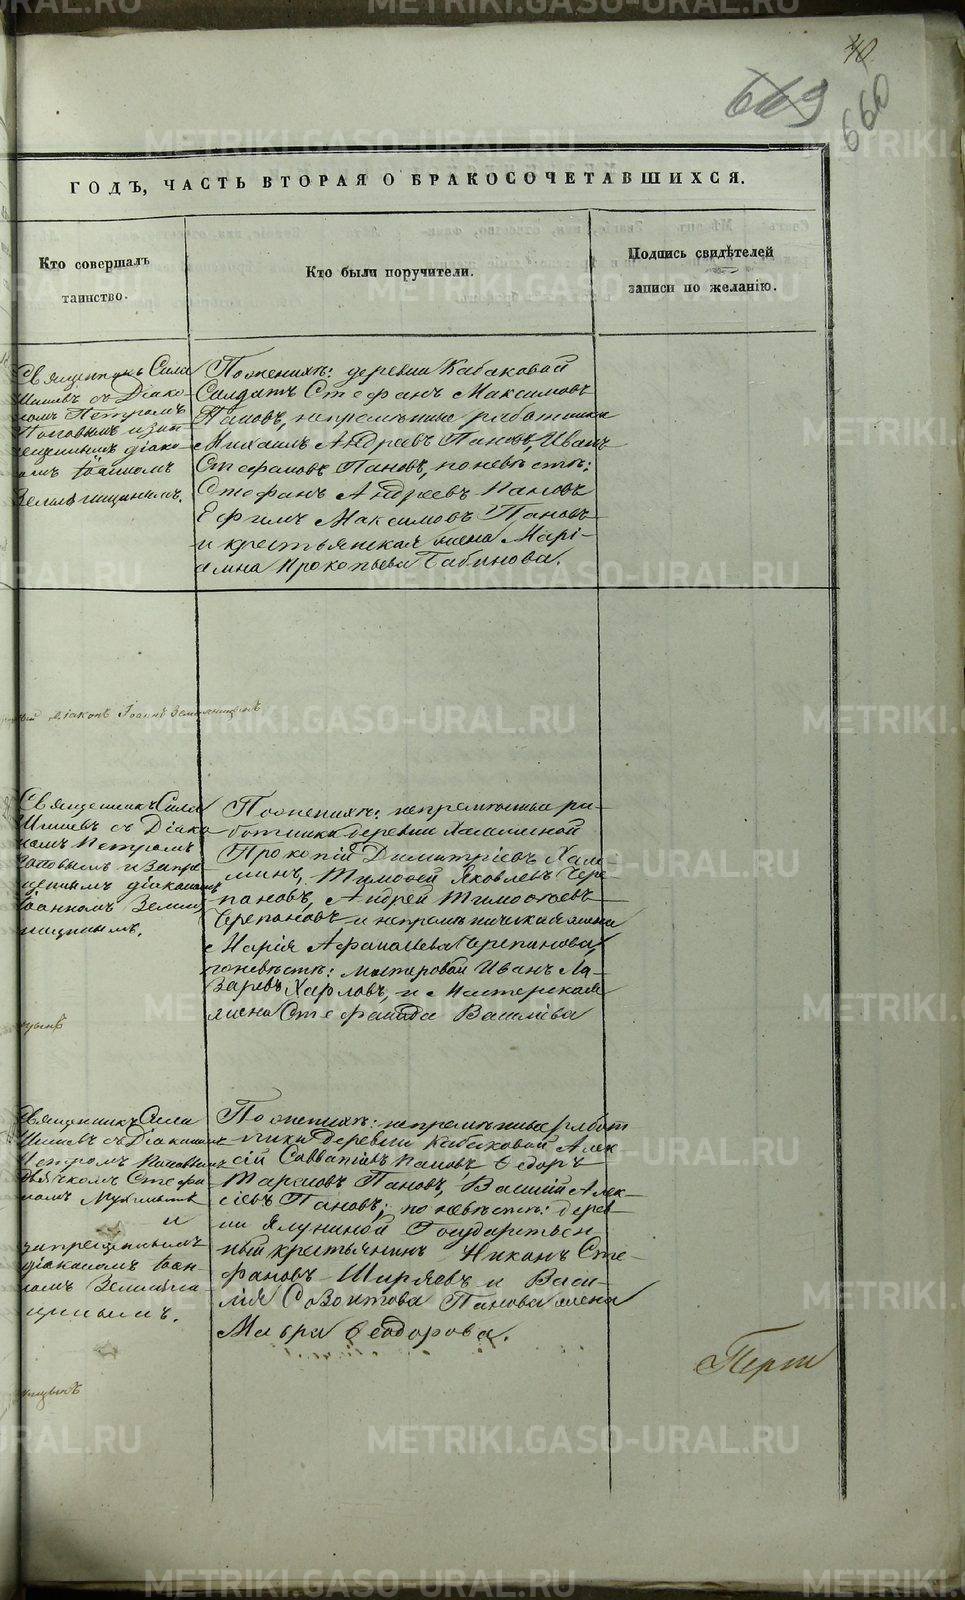 40
669
660
ГОДЪ, ЧАСТЬ ВТОРАЯ О БРАКОСОЧЕТАВШИХСЯ.
Кто совершалъ
таинство.
Кто были поручители.
Подпись свидѣтелей
записи по желанію.
Священникъ Сила
съ Діако-
номъ Петромъ
Поповымъ и запре
щеннымъ діако
номъ Іоанномъ
Земляницынымъ.
По женихѣ: деревни Кабаковой
Салдатъ Стефанъ Максимовъ
Пановъ, непремѣнные работники
Михаилъ Андреевъ Пановъ, Иванъ
Стефановъ Пановъ, по невѣстѣ:
Стефанъ Андреевъ Пановъ
Ефимъ Максимовъ Пановъ
и крестьянская жена Марі-
амна Прокопьева Бабинова.
діаконъ Іоаннъ Земляницынъ
Священникъ Сила
съ Діако
номъ Петромъ
Поповымъ и Запре
щеннымъ діакономъ
Іоанномъ Земля
ницынымъ.
По женихѣ: непремѣнные ра-
ботники деревни Халаминой
Прокопій Димитріевъ Хала-
минъ, Тимофей Яковлевъ Чере
пановъ, Андрей Тимофеевъ
Черепановъ и непремѣническая жена
Марія Афанасьева Черепанова,
по невѣстѣ: мастеровой Иванъ Ла-
заревъ Харловъ, и Мастерская
жена Стефанида Васильева
Священникъ Сила
съ Діакономъ
Петромъ Поповымъ
Дьячкомъ Стефа
номъ
и
запрещеннымъ
діакономъ Іоан-
номъ Земляни
цынымъ.
По женихѣ: непремѣнные работ
ники деревни Кабаковой Алек
сій Савватіевъ Пановъ, Ѳедоръ
Марковъ Пановъ, Василій Алек-
сіевъ Пановъ; по невѣстѣ: дерев
ни Ялуниной Государствен
ный крестьянинъ Никанъ Сте-
фановъ Ширяевъ и Васи-
лія Панова жена
Мавра Ѳеодорова.
METRIKI.GASO-URAL.RU